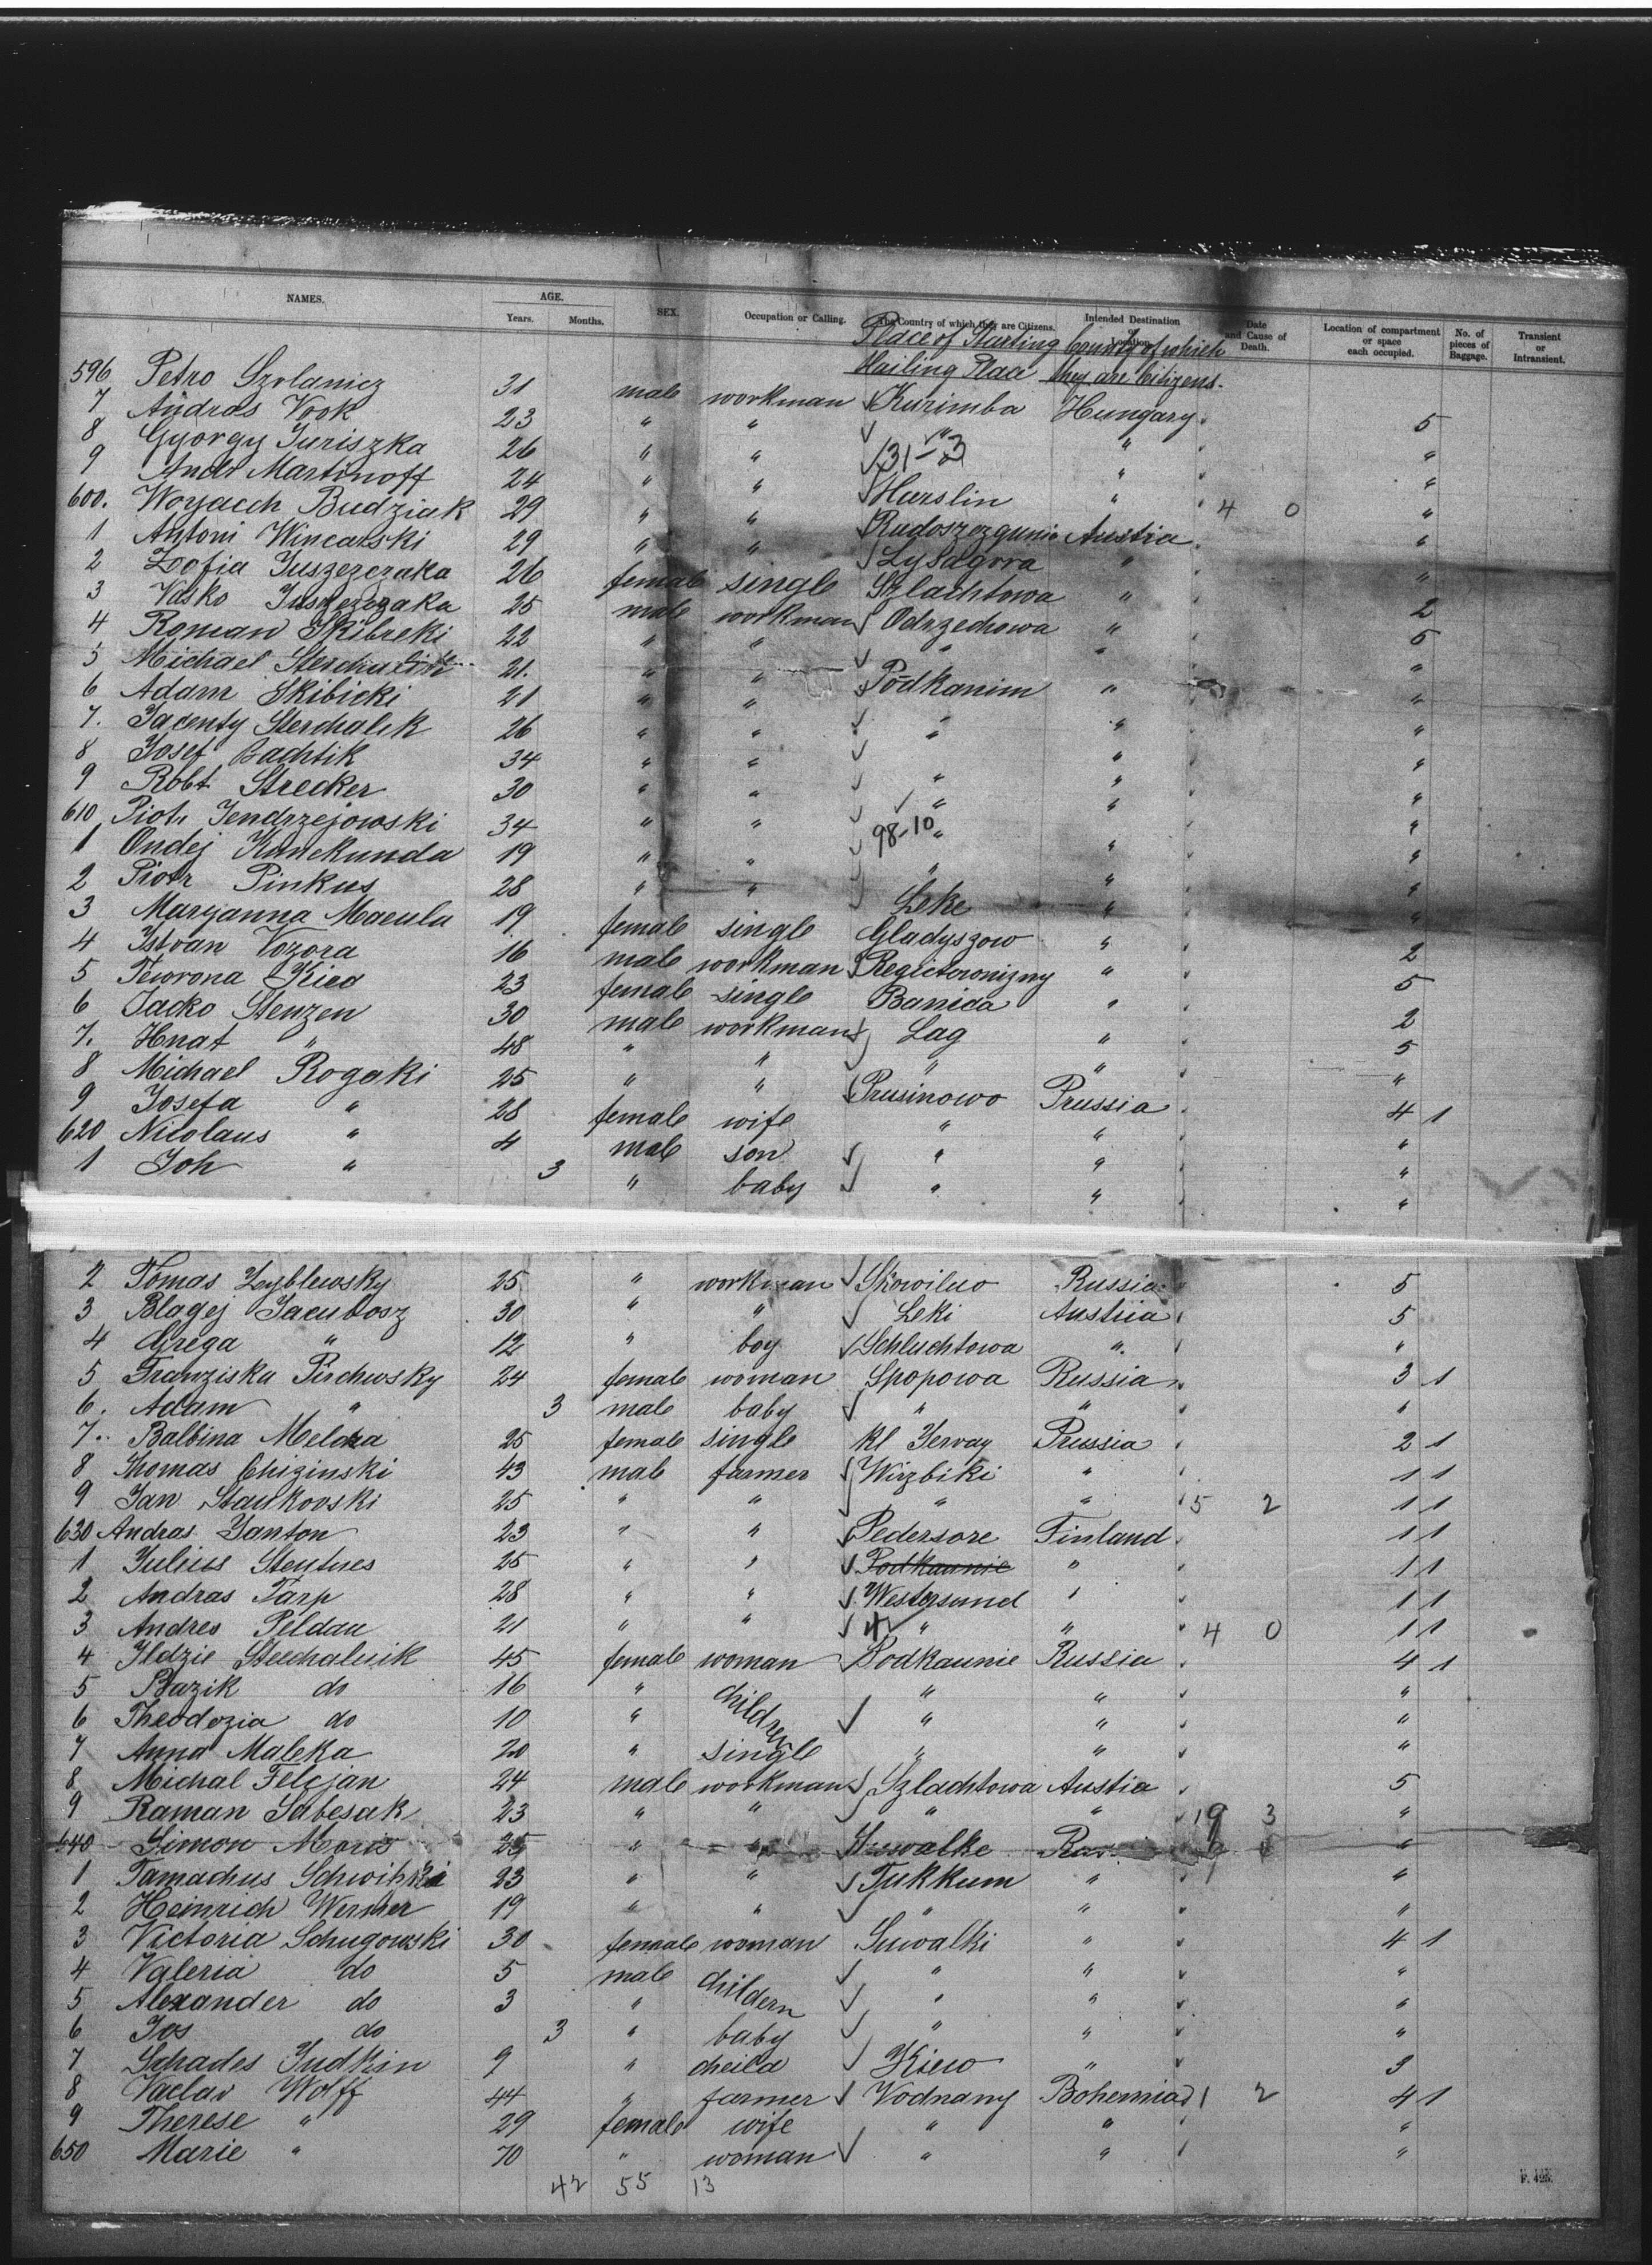 NAMES. AGE. Years. Months. SEX. Occupation or Calling. The Country of which they are Citizens. Intended Destination Location. Date and Cause of Death. Location of compartment or space each occupied. No. of pieces of Baggage. Transient or Intransient.
Place of Starting County of which
Hailing Place they are Citizens.
596 Petro Szolanicz 31 male workman Kurimba Hungary 5
7 Andras Vook 23 " " " " "
8 Gyorgy Juriszka 26 " " 31-3 " "
9 Andr Martinoff 24 " " Hurslin " 4 0 "
600. Woyacch Budziak 29 " " Austria "
1 Antoni Wincarski 29 " " Lysagora " "
2 Zoofia Juszezczaka 26 female single Szlachtowa " 2
3 Vasko Juszezczaka 25 male workman Odrzechowa " 5
4 Roman Skibreki 22 " " " " "
5 Michael 21. " " Podkanim " "
6 Adam Skibicki 21 " " " " "
7. Jacenty Sterchalik 26 " " " "
8 Josef Bachtik 34 " " " " "
9 Robt Strecker 30 " " " " "
610 Piotr Jendrzejowski 34 " " 98-10 " " "
1 Ondej Kunekunda 19 " " " " "
2 Piotr Pinkus 28 " " Leke " "
3 Maryanna Macula 19 female single Gladyszow " 2
4 Istvan Vozora 16 male workman " 5
5 Teworona Kied 23 female single Banica " 2
6 Jacko Stenzen 30 male workman Lag " 5
7. Hnat " 48 " " " " "
8 Michael Rogaki 25 " " Prusinowo Prussia 4 1
9 Josefa " 28 female wife " " "
620 Nicolaus " 4 male son " " "
1 Joh " 3 " baby " " "
2 Tomas Zeyblewsky 25 " workman Skowiluo Russia 5
3 Blagej Jacubosz 30 " " Leki Austria 5
4 Grega " 12 " boy Schluchtowa " "
5 Franziska Pirchwsky 24 female woman Spopowa Russia 3 1
6. Adam " 3 male baby " " "
7. Balbina Melcka 25 female single Kl Jervay Prussia 2 1
8 Thomas Chizinski 43 male farmer Wirzbiki " 1 1
9 Jan Staukovski 25 " " " " 5 2 1 1
630 Andras Janton 23 " " Pedersore Finland 1 1
1 Julius Stentnes 25 " " Podkaunie " 1 1
2 Andras Tarp 28 " " Westersund " 1 1
3 Andres Peldau 21 " " " " 4 0 1 1
4 Ildzie Stechalnik 45 female woman Podkaunie Russia 4 1
5 Bazik do 16 " children " " "
6 Theodozia do 10 " " " "
7 Anna Maleka 20 " single " " "
8 Michal Felcjan 24 male workman Szlachtowa Austia 5
9 Raman Sabesak 23 " " " " 19 3 "
640 Simon Moris 25 " " Suwalke "
1 Tamachus 23 " " Tukkum " "
2 Heinrich Werner 19 " " " " "
3 Victoria Schugowski 30 female woman Suwalki " 4 1
4 Valeria do 5 male childern " " "
5 Alexander do 3 " " " "
6 Jos do 3 " baby " " "
7 Schades Judkin 9 " cheild Kiew " 3
8 Vaclav Wolff 44 " farmer Vodnany Bohemia 1 2 4 1
9 Therese " 29 female wife " " "
650 Marie " 70 " woman " " "
42 55 13
F. 425.